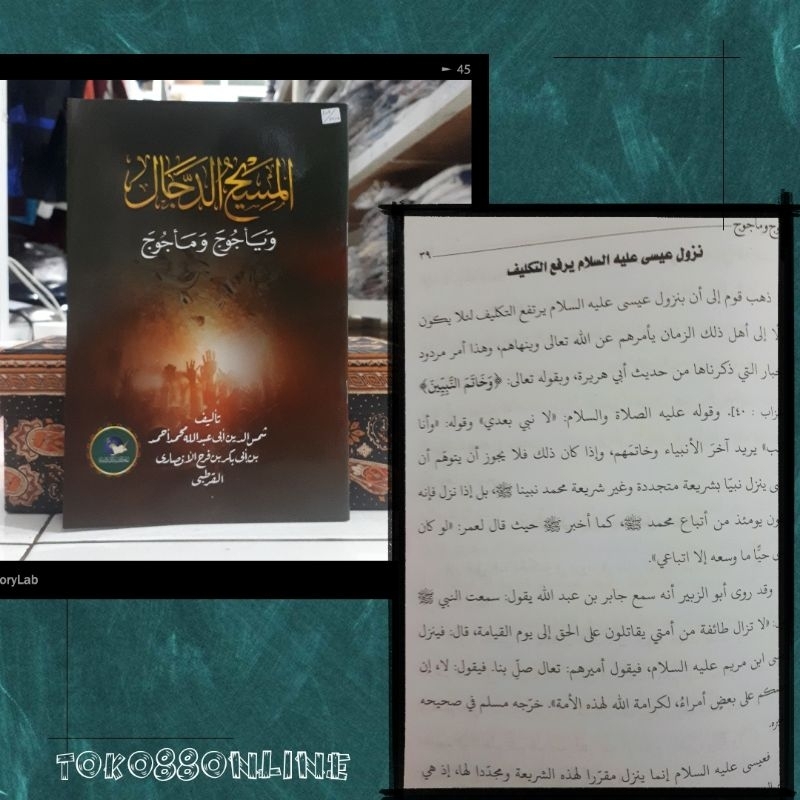 ► 45
المسيح الدجال
ويأجوج ومأجوج
تأليف
شمس الدين أبي عبد الله محمد أحمد
بن أبي بكر بن فرح الأنصاري
القرطبي
oryLab
ومأجوج
٣٩
نزول عيسى عليه السلام يرفع التكليف
ذهب قوم إلى أن بنزول عيسى عليه السلام يرتفع التكليف لئلا يكون
إلى أهل ذلك الزمان يأمرهم عن الله تعالى وينهاهم، وهذا أمر مردود
التي ذكرناها من حديث أبي هريرة، وبقوله تعالى: ﴿وَخَاتَمَ النَّبِيِّينَ﴾
: ٤٠]. وقوله عليه الصلاة والسلام: «لا نبي بعدي» وقوله: «وأنا
يريد آخرَ الأنبياء وخاتمَهم، وإذا كان ذلك فلا يجوز أن يتوهّم أن
ينزل نبيًّا بشريعة متجددة وغير شريعة محمد نبينا ﷺ، بل إذا نزل فإنه
يومئذ من أتباع محمد ﷺ، كما أخبر ﷺ حيث قال لعمر: «لو كان
حيًّا ما وسعه إلا اتباعي».
وقد روى أبو الزبير أنه سمع جابر بن عبد الله يقول: سمعت النبي ﷺ
«لا تزال طائفة من أمتي يقاتلون على الحق إلى يوم القيامة، قال: فينزل
ابن مريم عليه السلام، فيقول أميرهم: تعال صلِّ بنا. فيقول: لا، إن
على بعضٍ أمراءُ، لكرامة الله لهذه الأمة». خرّجه مسلم في صحيحه
فعيسى عليه السلام إنما ينزل مقرّرا لهذه الشريعة ومجدّدا لها، إذ هي
TOKO88ONLINE